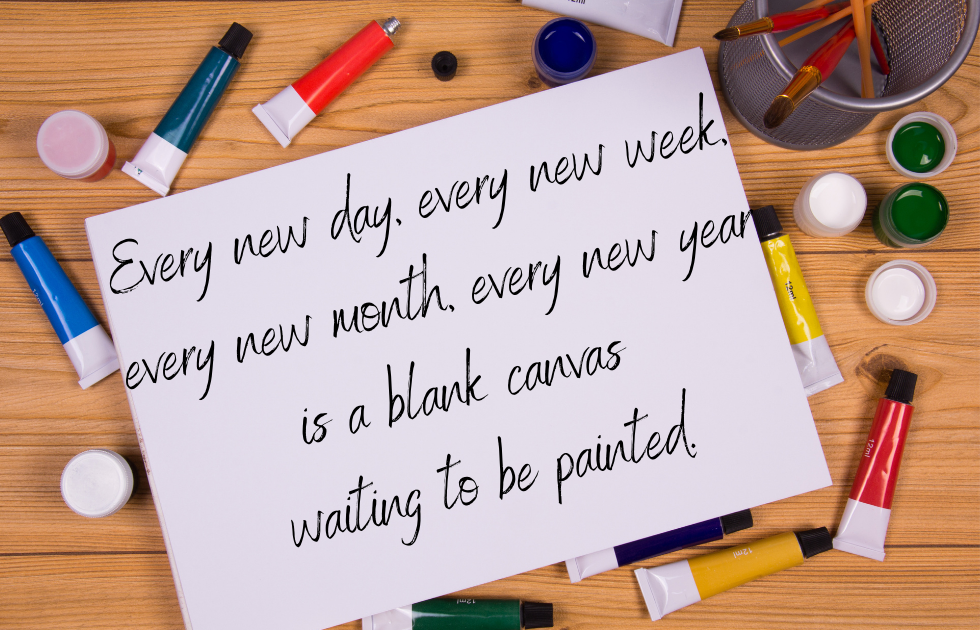 Every new day, every new week,
every new month, every new year
is a blank canvas
waiting to be painted.
12ml
12ml
12ml
12ml
12ml